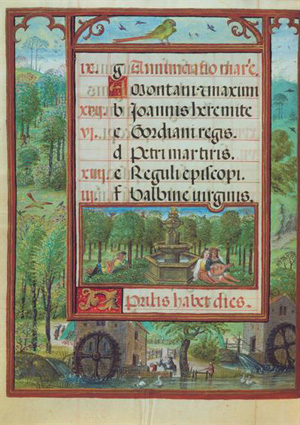 g Annunciatio marie.
A montani maximi
b Joannis heremite
vi c Gordiani regis.
d Petri martiris.
e Reguli episcopi.
iii f Balbine virginis.
Aprilis habet dies.